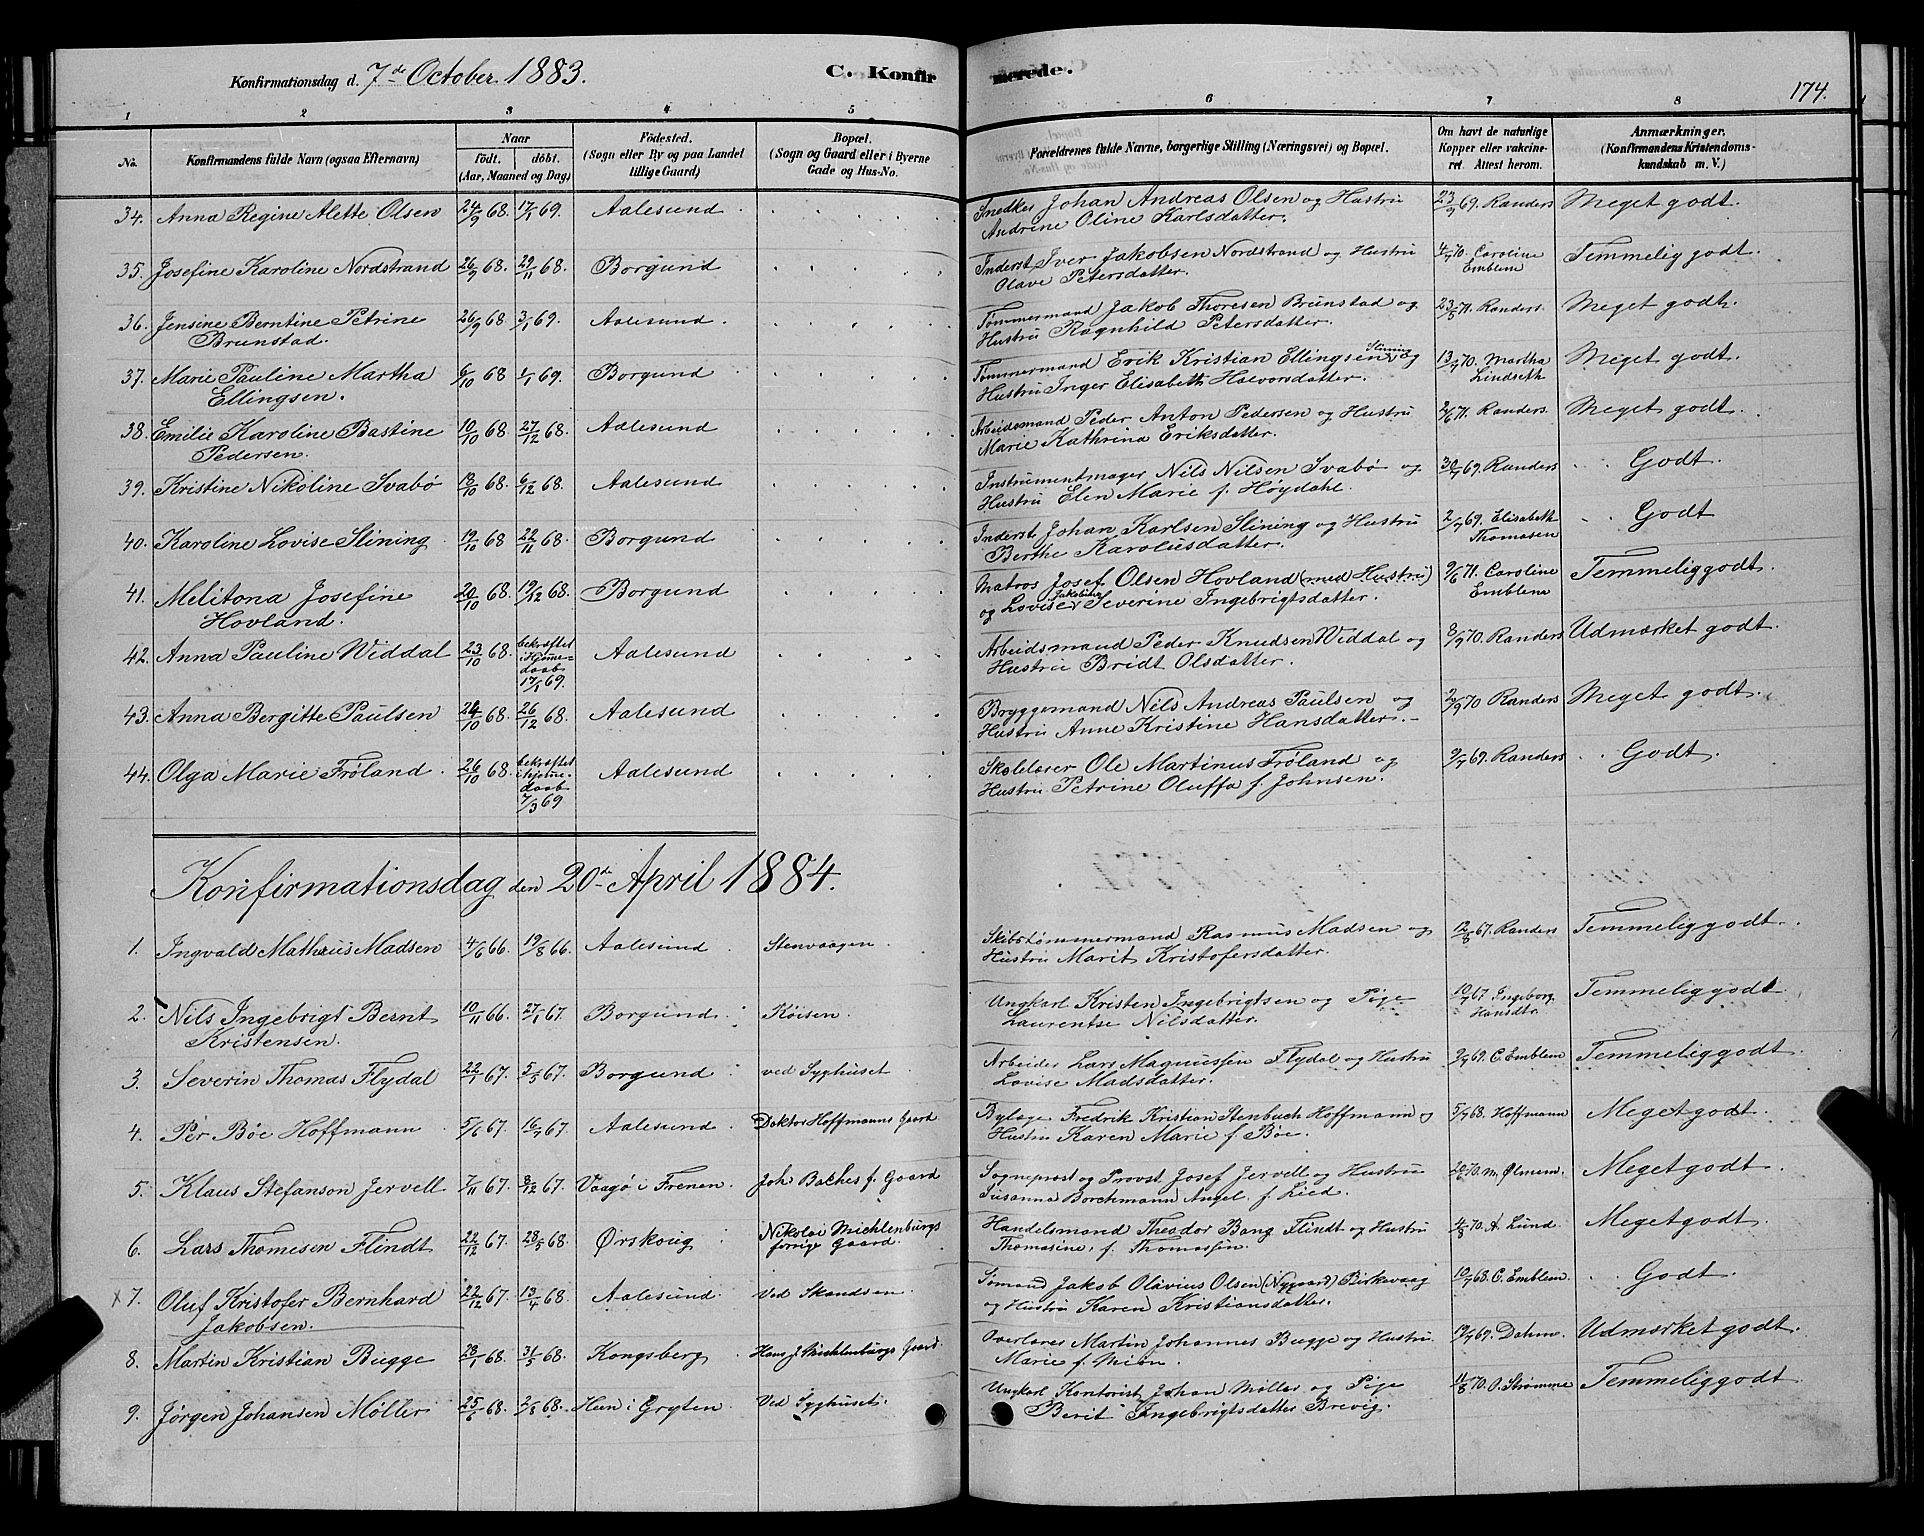 Konfirmationsdag d. 7de October 1883. C. Konfirmerede. 174.
1 2 3 4 5 6 7 8
No. Konfirmandens fulde Navn (ogsaa Efternavn) Naar födt. döbt. (Aar, Maaned og Dag) Födested. (Sogn eller By og paa Landet tillige Gaard) Bopæl. (Sogn og Gaard eller i Byerne Gade og Hus-No. Forældrenes fulde Navne, borgerlige Stilling (Næringsvei) og Bopæl. Om havt de naturlige Kopper eller vakcineret. Attest herom. Anmærkninger. (Konfirmandens Kristendomskundskab m. V.)
34. Anna Regine Alette Olsen 24/9 68. 17/1 69. Aalesund Snedker Johan Andreas Olsen og Hustru 23/9 69. Randers Meget godt.
Andrine Oline Karlsdatter.
35. Josefine Karoline Nordstrand 26/9 68. 29/11 68. Borgund Inderst Iver Jakobsen Nordstrand og Hustru 4/7 70. Caroline Emblem Temmelig godt.
Olave Petersdatter.
36. Jensine Berntine Petrine 26/9 68 3/1 69. Aalesund Tømmermand Jakob Thoresen Brunstad og 23/5 71. Randers. Meget godt.
Brunstad. Hustru Ragnhild Petersdatter.
37. Marie Pauline Martha 6/10 68 1/1 69. Borgund Tømmermand Erik Kristian Ellingsen Slining og 13/7 70. Martha Lindseth Meget godt.
Ellingsen. Hustru Inger Elisabeth Halvorsdatter.
38. Emilie Karoline Bastine 10/10 68 27/12 68. Aalesund Arbeidsmand Peder Anton Pedersen og Hustru 2/6 71. Randers. Meget godt.
Pedersen. Marie Kathrina Eriksdatter.
39. Kristine Nikoline Svabø 13/10 68. 6/12 68. Aalesund Instrumentmager Nils Nilsen Svabø og 30/7 69. Randers Godt.
Hustru Elen Marie f. Høydahl.
40. Karoline Lovise Slining 19/10 68 22/11 68. Borgund Inderst Johan Karlsen Slining og Hustru 2/7 69. Elisabeth Thomasen Godt
Berthe Karolusdatter.
41. Melitona Josefine 20/10 68. 19/12 68. Borgund Matros Josef Olsen Hovland (med Hustru) 9/6 71. Caroline Emblem Temmelig godt.
Hovland. og Lovise Jakobine Severine Ingebrigtsdatter.
42. Anna Pauline Widdal 23/10 68. bekræftet i Hjemmedaab 17/1 69. Aalesund Arbeidsmand Peder Knudsen Widdal og 8/9 70. Randers Udmærket godt.
Hustru Bridt Olsdatter.
43. Anna Bergitte Paulsen 24/10 68. 26/12 68. Aalesund Bryggemand Nils Andreas Paulsen og 2/9 70 Randers Meget godt.
Hustru Anne Kristine Hansdatter.
44. Olga Marie Frøland 26/10 68. bekræftet i hjemmedaab 7/3 69 Aalesund Skolelærer Ole Martinus Frøland og 2/7 69. Randers Godt.
Hustru Petrine Oluffa f. Johnsen.
Konfirmationsdag den 20de April 1884.
1. Ingvald Mathæus Madsen 4/6 66. 19/8 66. Aalesund Stenvaagen. Skibstømmermand Rasmus Madsen og 12/8 67. Randers Temmelig godt.
Hustru Marit Kristofersdatter.
2. Nils Ingebrigt Bernt 10/11 66. 27/1 67. Borgund Køisen. Ungkarl Kristen Ingebrigtsen og Pige 10/7 67 Ingeborg Hansdtr. Temmelig godt
Kristensen. Laurentse Nilsdatter.
3. Severin Thomas Flydal 22/1 67. 5/5 67. Borgund ved Syghuset Arbeider Lars Magnussen Flydal og Hustru 2/7 69. C. Emblem Temmelig godt.
Lovise Madsdatter.
4. Per Bøe Hoffmann 5/6 67. 16/7 67. Aalesund Doktor Hoffmanns Gaard Bylæge Fredrik Kristian Stenbuch Hoffmann og 5/7 68. Hoffmann Meget godt.
Hustru Karen Marie f. Bøe.
5. Klaus Stefanson Jervell 7/11 67. 8/12 67. Vaagø i Frenen. Joh Baches f. Gaard Sognepræst og Provst Josef Jervell og Hustru Meget godt.
Susanna Borchmann Angel. f. Lied.
6. Lars Thomesen Flindt 22/12 67. 28/5 68. Ørskoug Nikolai Michlenburgs forrige Gaard. Handelsmand Theodor Bang Flindt og Hustru 4/8 70. A. Lund. Meget godt.
Thomasine, f. Thomassen.
7. Oluf Kristofer Bernhard 22/12 67. 13/4 68. Aalesund. Ved Skandsen. Sømand Jakob Olavius Olsen (Nygaard) Birkevaag 10/7 68. C. Emblem. Godt
Jakobsen. og Hustru Karen Kristiansdatter.
8. Martin Kristian Bugge 28/1 68. 31/5 68. Kongsberg Hans J. Michlenburgs Gaard. Overlærer Martin Johannes Bugge og Hustru 19/7 69. Dahm. Udmærket godt.
Marie f. Miøn.
9. Jørgen Johansen Møller 25/6 68. 2/8 68. Hen i Gryten Ved Syghuset. Ungkarl Kontorist Johan Møller og Pige 11/8 70. O. Strømme Temmelig godt
Berit Ingebrigtsdatter Brevig.